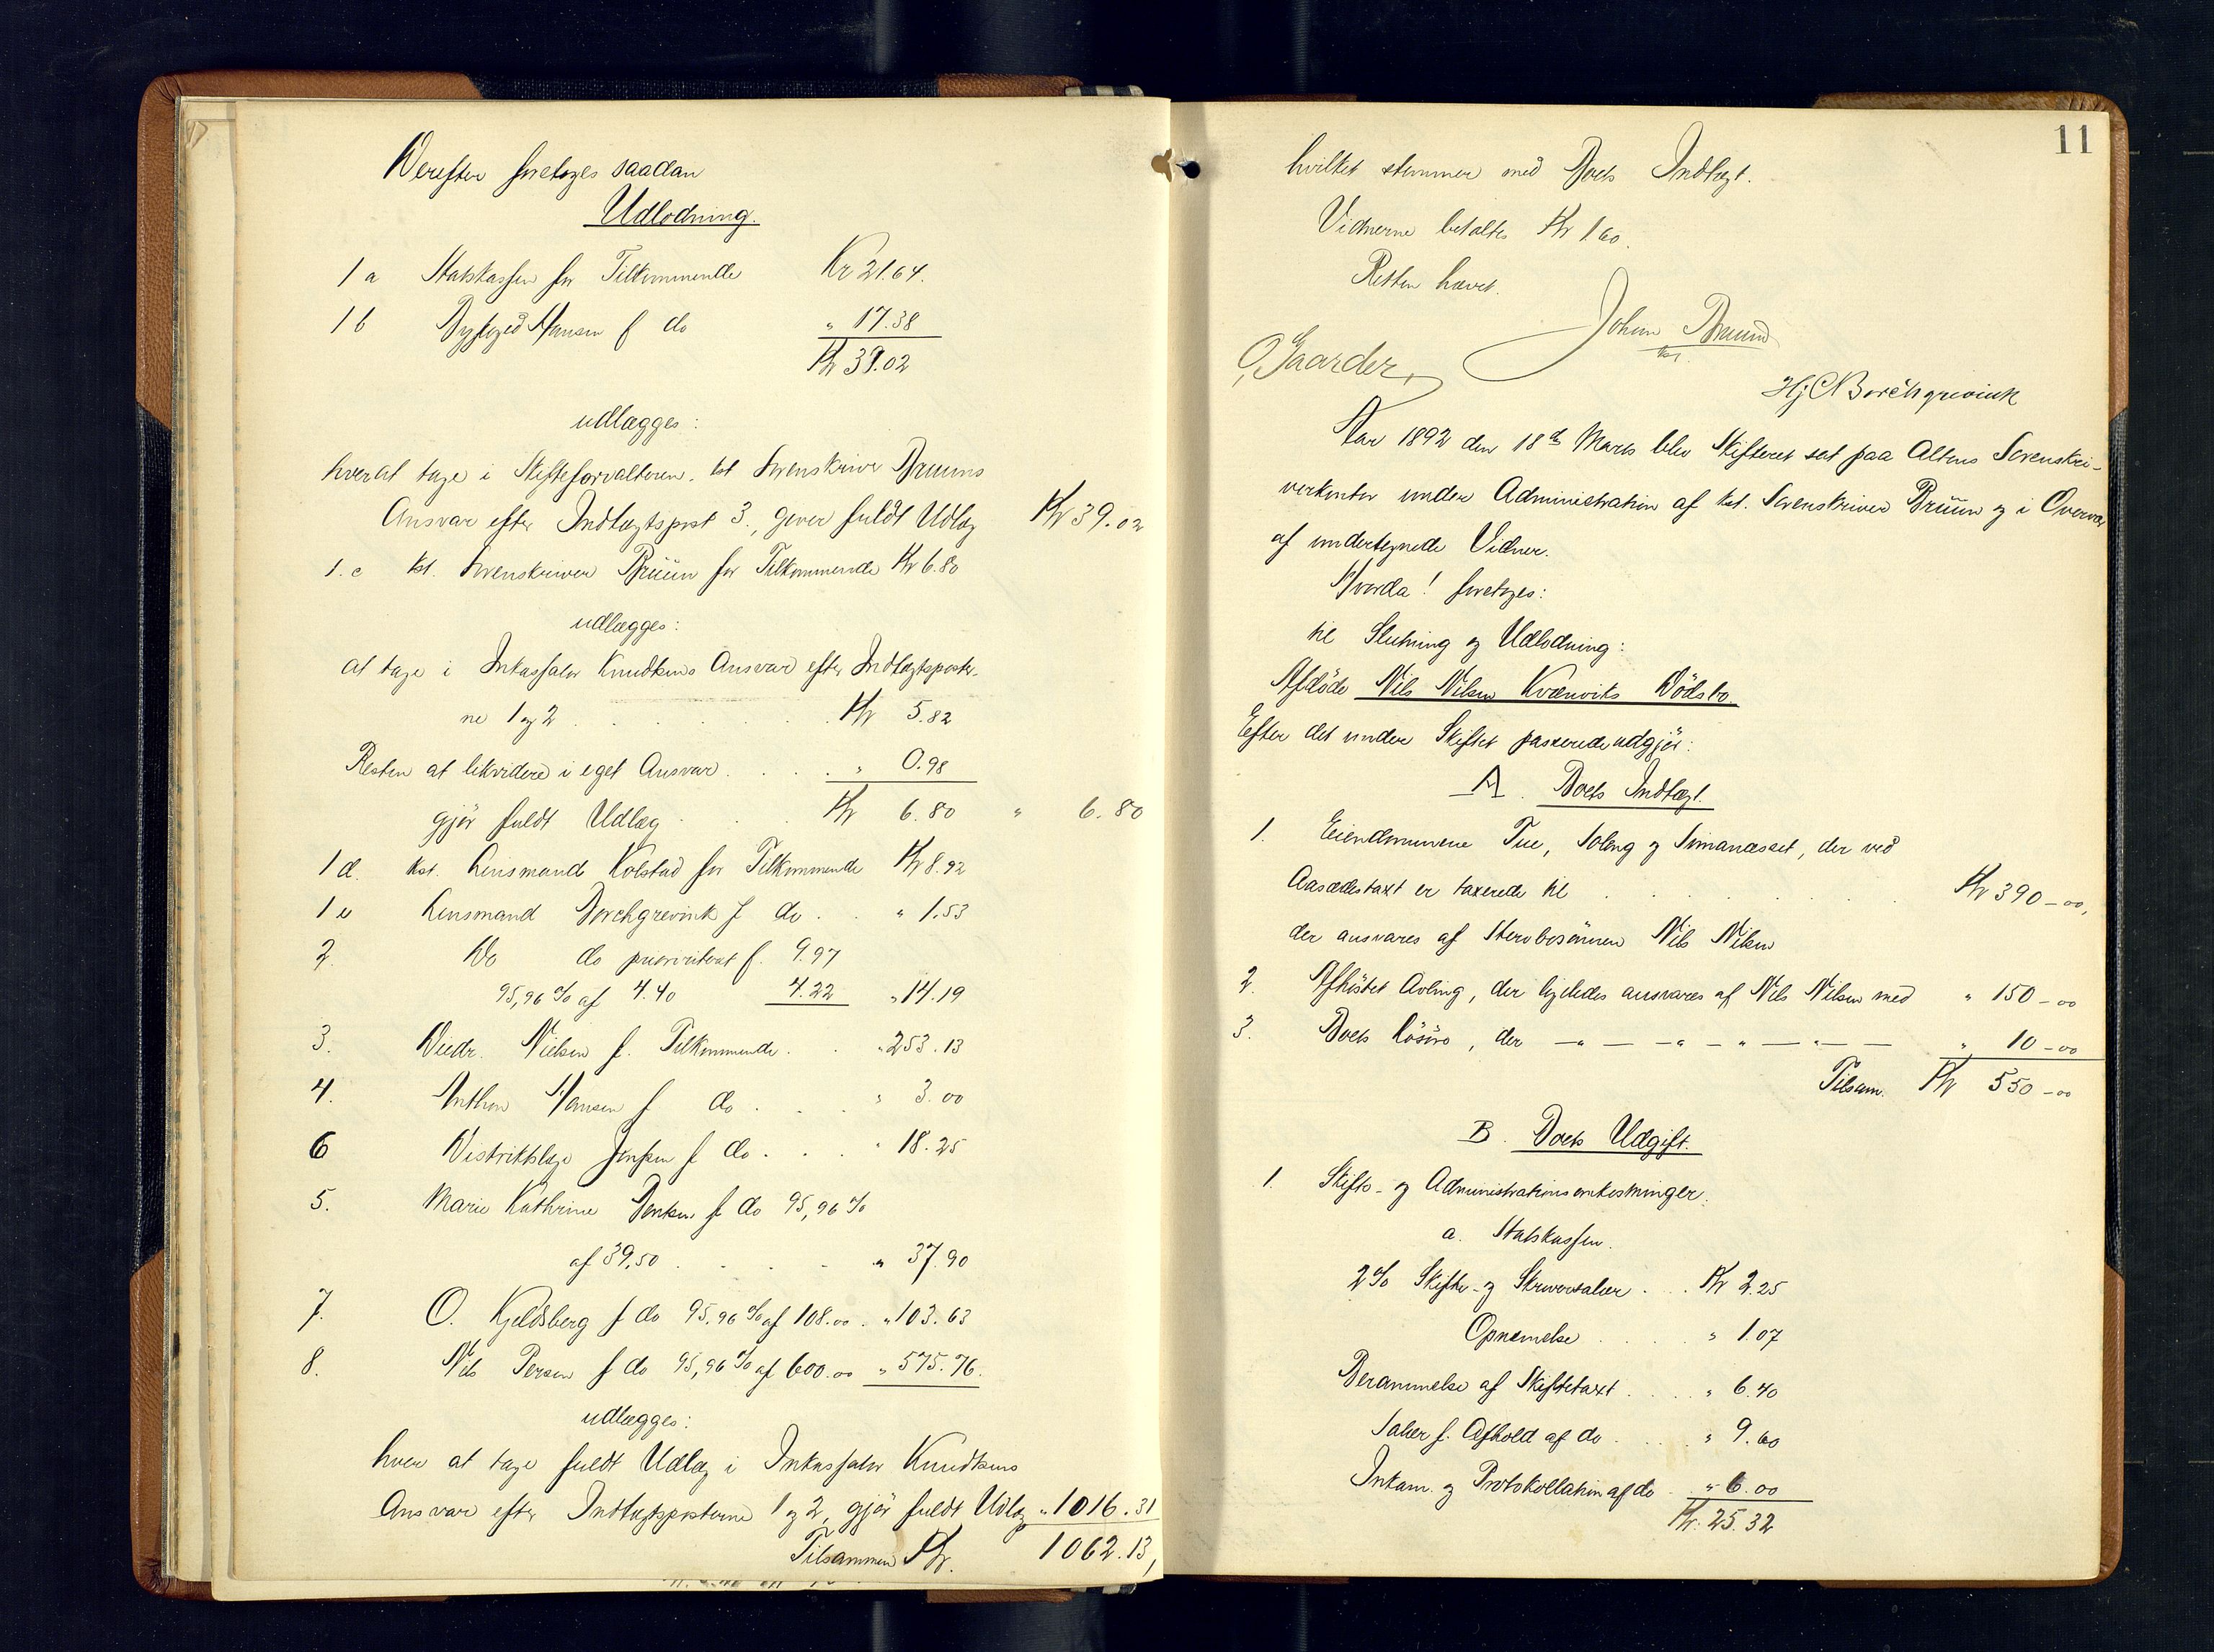 Derefter foretoges saadan
Udlodning.
1 a Statskassen for Tilkommende Kr 21.64.
1 b Hansen f do " 17.38
Kr 39.02
udlægges:
hver at tage i Skifteforvalteren, kst Sorenskriver Bruuns
Ansvar efter Indtægtspost 3., giver fuldt Udlæg Kr 39.02
1.c kst. Sorenskriver Bruun for Tilkommende Kr 6.80
udlægges:
at tage i Inkassator Knudtzens Ansvar efter Indtægtsposter-
ne 1 og 2 . . . . . . Kr 5.82
Resten at likvidere i eget Ansvar . . . . " 0.98
gjør fuldt Udlæg . . . Kr 6.80 " 6.80
1 d. kst. Lensmand Kolstad for Tilkommende Kr 8.92
1 e Lensmand Borchgrevink f do . . " 1.53
2. Do do prioritert f. 9.97
95,96 % af 4.40 4.22 " 14.19
3. Diedr. Nielsen f. Tilkommende . . " 253.13
4. Anthon Hansen f do . . . " 3.00
6 Distriktslæge Jensen f do . . . " 18.25
5. Marie Kathrine f do 95,96 %
af 39,50 . . . . . " 37.90
7. O. Kjeldsberg f do 95,96 % af 108.00 . " 103.63
8. Nils Persen f do 95,96 % af 600.00 " 575.76.
udlægges:
hver at tage fuldt Udlæg i Inkassator Knudtzens
Ansvar efter Indtægtsposterne 1 og 2, gjør fuldt Udlæg " 1016.31
Tilsammen Kr. 1062.13,
11
hvilket stemmer med Boets Indtægt.
Vidnerne betaltes Kr 1.60.
Retten hævet.
Johan Bruun
kst.
O. Gaarder,
Hj C Borchgrevink
Aar 1892 den 18de Marts blev Skifteret sat paa Altens Sorenskri-
verkontor under Administration af kst. Sorenskriver Bruun og i Overvær
af undertegnede Vidner.
Hvorda! foretoges:
til Slutning og Udlodning:
Afdøde Nils Nilsen Kvænviks Dødsbo.
Efter det under Skiftet passerede udgjør:
A. Boets Indtægt.
1. Eiendommene Tue, Soleng og Simanæsset, der ved
Aasædestaxt er taxerede til . . . . . . Kr 390-00,
der ansvares af Stervbosønnen Nils Nilsen
2. Afhøstet Avling, der ligeledes ansvares af Nils Nilsen med " 150-00
3. Boets Løsøre, der — " — — " — " — " — — " 10-00
Tilsam. Kr 550-00
B. Boets Udgift.
1. Skifte- og Administrationsomkostninger:
a. Statskassen.
2 % Skifte- og Skriversalær . . . Kr 2.25
Opnævnelse . . . . " 1.07
Berammelse af Skiftetaxt . . . . " 6.40
Salær f. Afhold af do . . . . " 9.60
Inkam. og Protokollation af do . " 6.00
Kr. 25.32